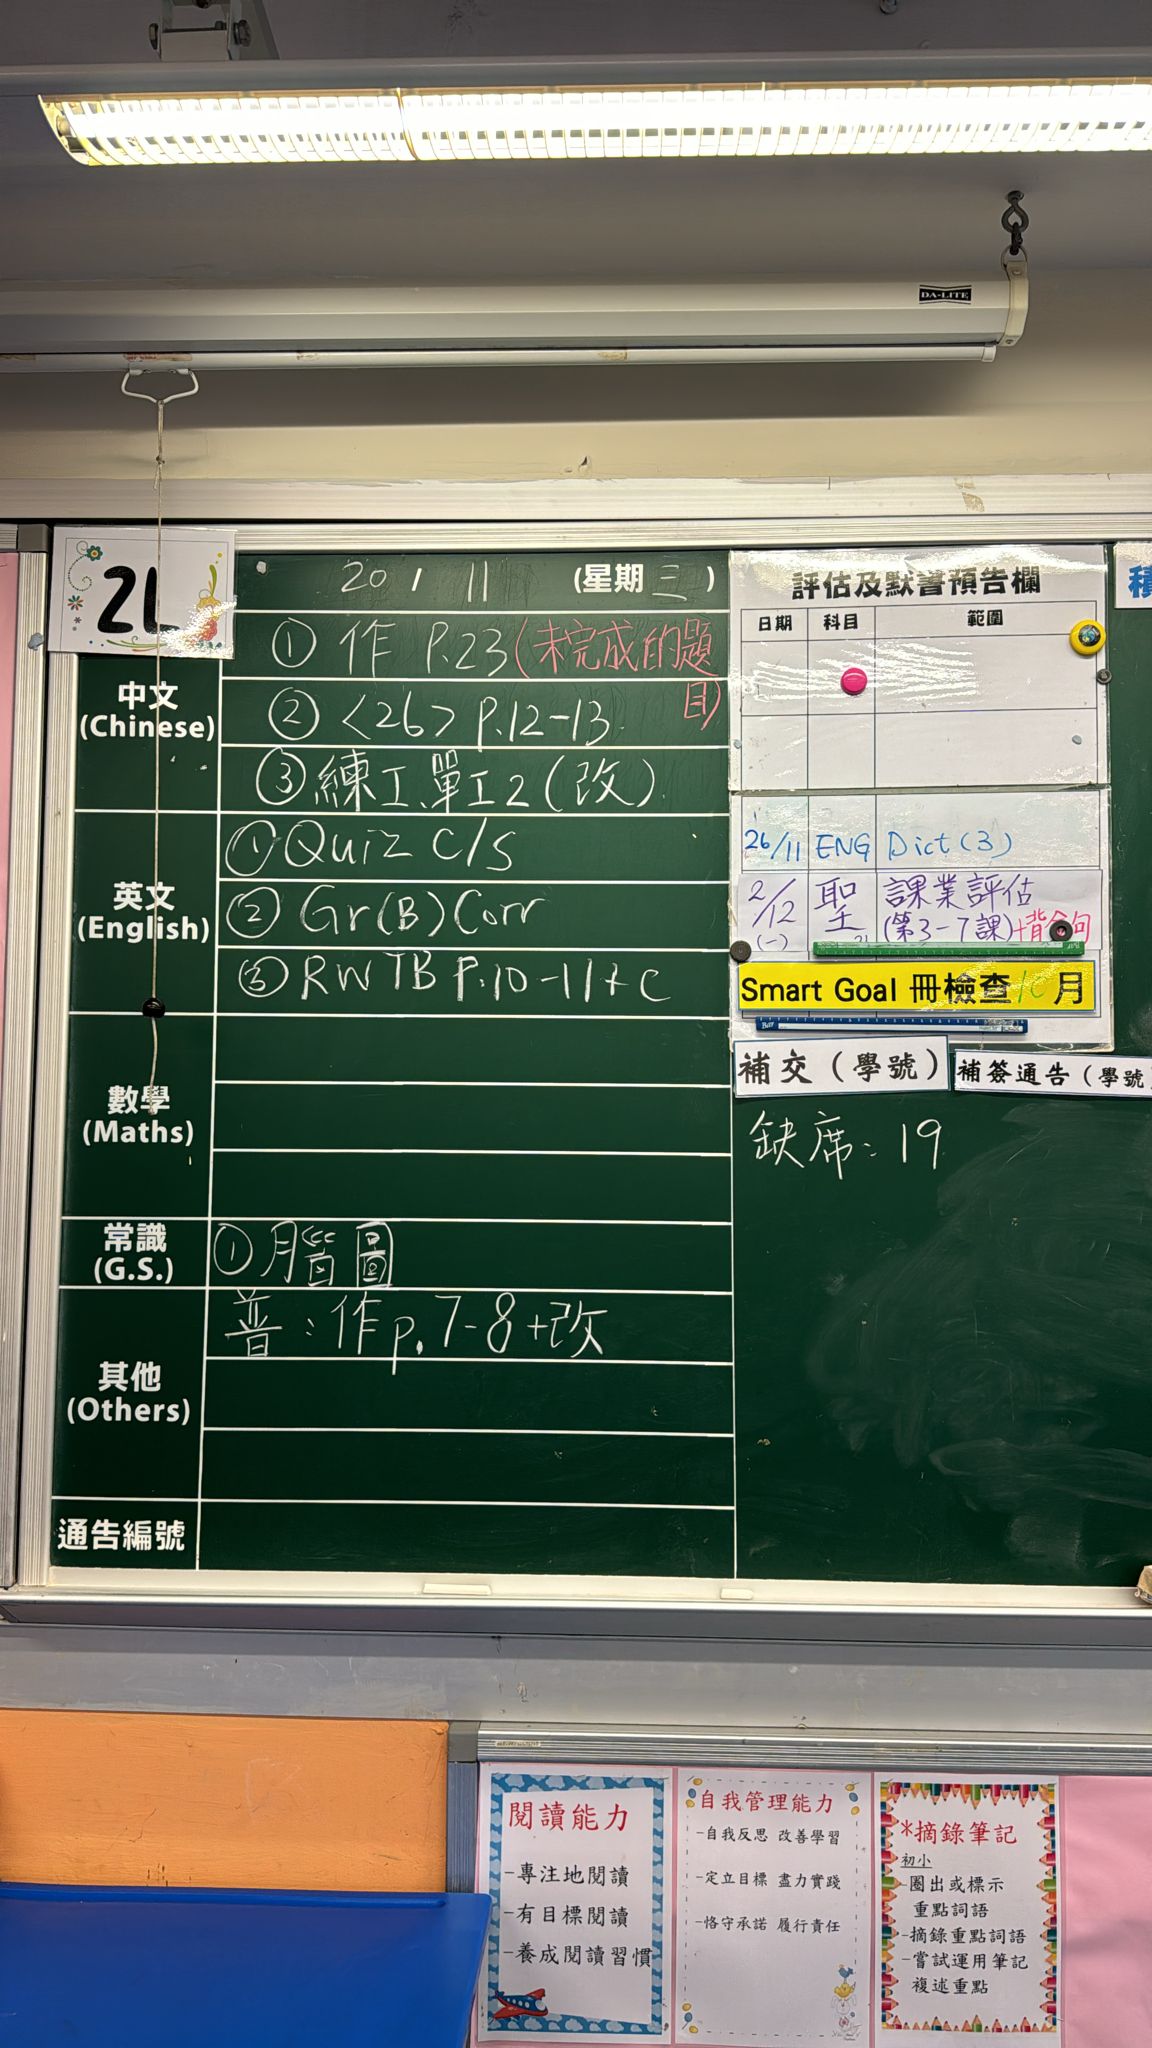 DA-LITE
2L
20 / 11 (星期三)
中文
(Chinese)
① 作 P.23(未完成的題
目)
② <26> P.12-13
③ 練工、單工2(改)
英文
(English)
① Quiz C/S
② Gr(B) Corr
③ RW TB P.10-11+C
數學
(Maths)
常識
(G.S.)
① 腦圖
其他
(Others)
普:作p.7-8+改
通告編號
評估及默書預告欄
日期 科目 範圍
26/11 ENG Dict(3)
2/12 聖 課業評估
(一) (第3-7課)+背金句
Smart Goal 冊檢查 月
補交(學號)
補簽通告(學號
缺席:19
積
閱讀能力
-專注地閱讀
-有目標閱讀
-養成閱讀習慣
自我管理能力
-自我反思 改善學習
-定立目標 盡力實踐
-恪守承諾 履行責任
*摘錄筆記
初小
-圈出或標示
重點詞語
-摘錄重點詞語
-嘗試運用筆記
複述重點